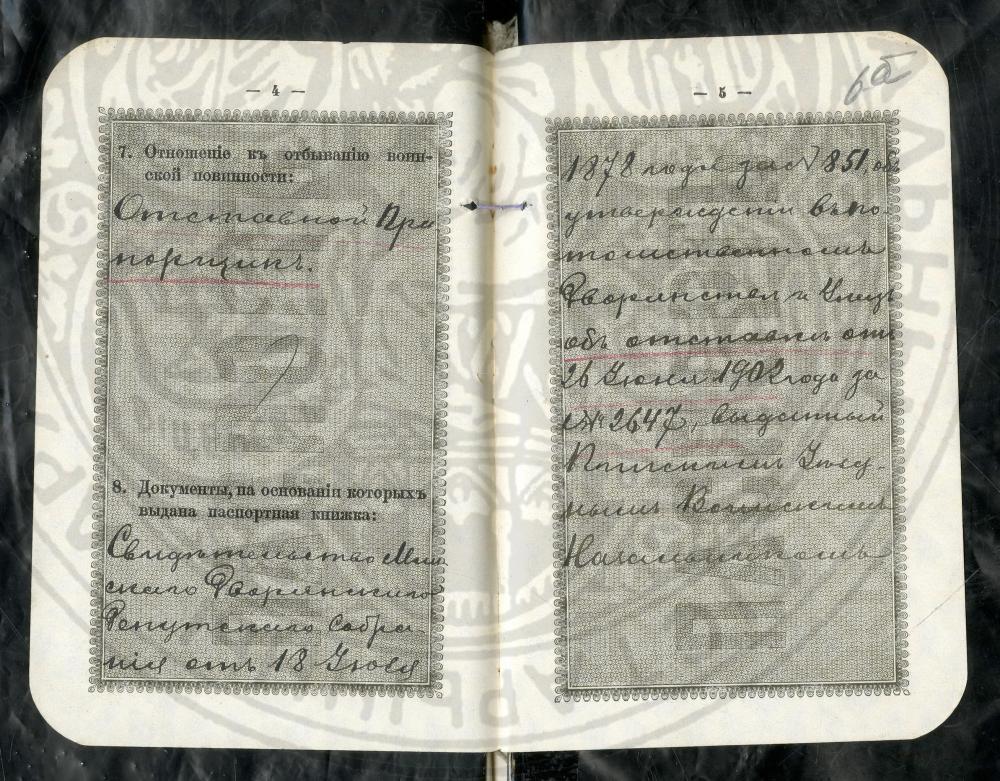 — 4 —
7. Отношеніе къ отбыванію воин-
ской повинности:
Отставной Пра
порщикъ.
8. Документы, на основаніи которыхъ
выдана паспортная книжка:
Свидѣтельство Мин
скаго Дворянскаго
Депутскаго Собра-
нія отъ 18 Іюля
— 5 —
6а
1878 года за № 851, объ
утвержденіи въ по
томственномъ
Дворянствѣ и Указъ
объ отставкѣ отъ
26 Іюня 1902 года за
№ 2647, выданный
Пинскимъ Уѣзд-
нымъ Воинскимъ
Начальникомъ